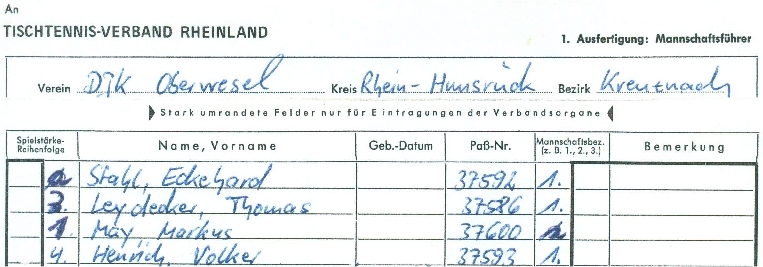 An
TISCHTENNIS-VERBAND RHEINLAND
1. Ausfertigung: Mannschaftsführer
Verein DJK Oberwesel Kreis Rhein-Hunsrück Bezirk Kreuznach
Stark umrandete Felder nur für Eintragungen der Verbandsorgane
Spielstärke-Reihenfolge Name, Vorname Geb.-Datum Paß-Nr. Mannschaftsbez. (z. B. 1., 2., 3.) Bemerkung
Stahl, Eckehard 37592 1.
3. Leydecker, Thomas 37586 1.
1. May, Markus 37600
4. Henrich, Volker 37593 1.